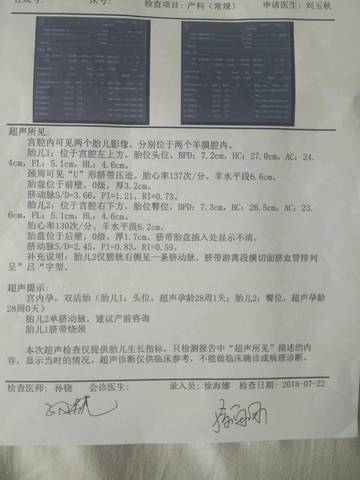 床号:
检查项目: 产科（常规）
申请医生: 刘玉秋
超声所见:
宫腔内可见两个胎儿影像，分别位于两个羊膜腔内。
胎儿1：位于宫腔左上方，胎位头位，BPD：7.2cm，HC：27.0cm，AC：24.
4cm，FL：5.1cm，HL：4.6cm。
颈周可见“U”形脐带压迹，胎心率137次/分。羊水平段6.6cm。
胎盘位于前壁，0级，厚3.2cm。
脐动脉S/D=3.66，PI=1.21，RI=0.73。
胎儿2：位于宫腔右下方，胎位臀位，BPD：7.3cm，HC：26.5cm，AC：23.
6cm，FL：5.1cm，HL：4.6cm。
胎心率130次/分。羊水平段6.2cm。
胎盘位于后壁，0级，厚1.7cm。脐带胎盘插入处显示不清。
脐动脉S/D=2.45，PI=0.83，RI=0.59。
补充说明：胎儿2仅膀胱右侧见一条脐动脉，脐带游离段横切面脐血管排列
呈“吕“字型。
超声提示:
宫内孕，双活胎（胎儿1；头位，超声孕龄28周1天；胎儿2；臀位，超声孕龄
28周0天）
胎儿2单脐动脉，建议产前咨询
胎儿1脐带绕颈
本次超声检查仅提供胎儿生长指标，只检测报告中“超声所见”描述的内
容，显示当时的情况。超声诊断仅供临床参考，不能做临床确诊或病理诊断。
检查医师: 孙铙 会诊医生: 录入员: 徐海娜 检查日期: 2018-07-22